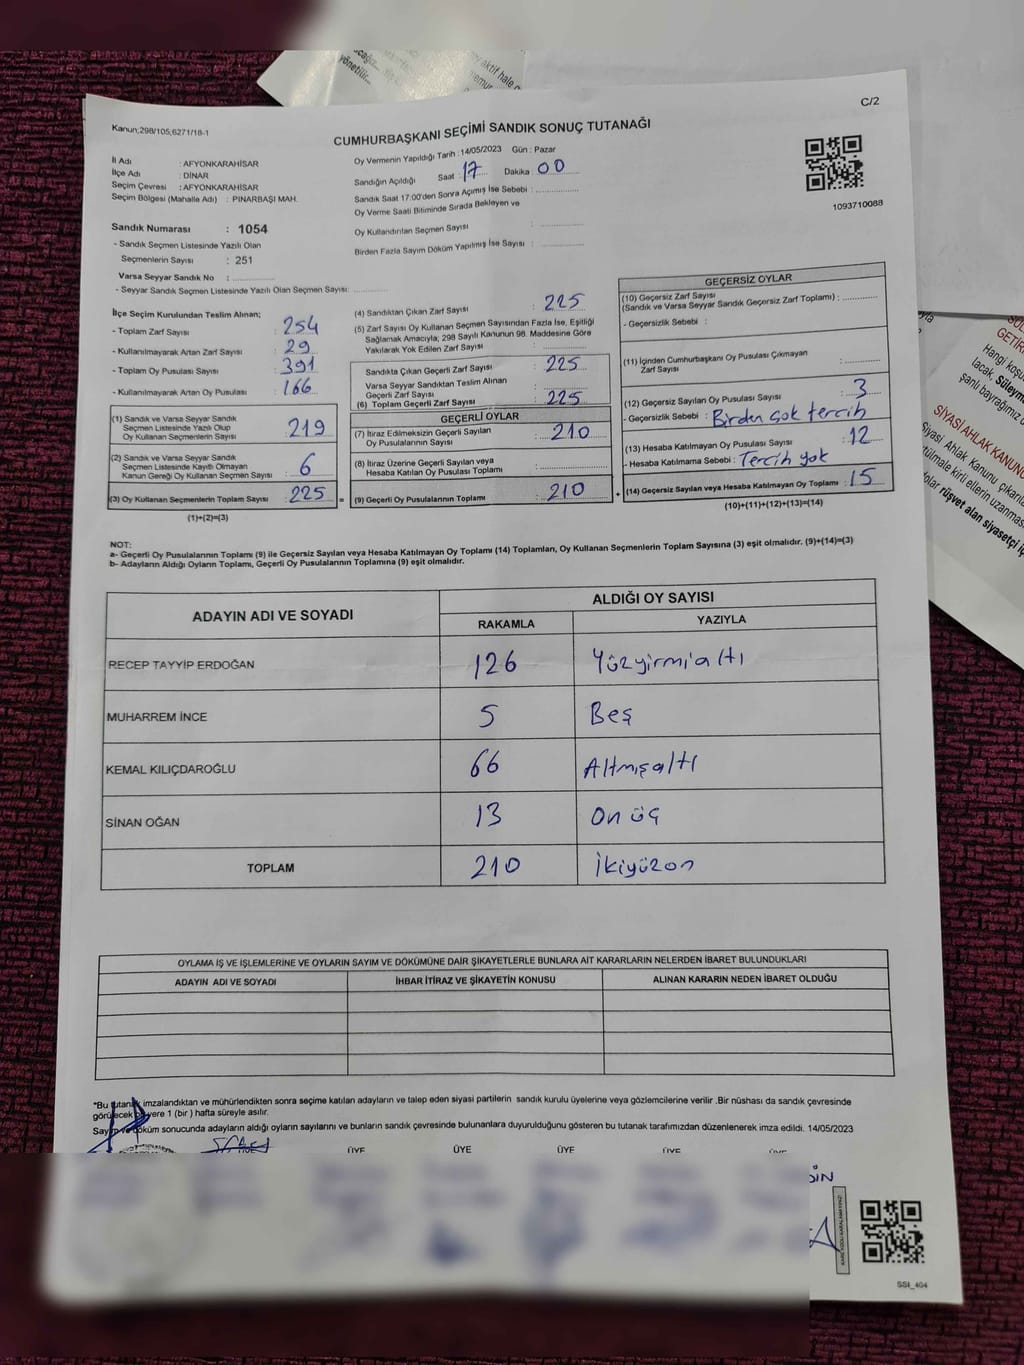 C/2
Kanun;298/105,6271/18-1
CUMHURBAŞKANI SEÇİMİ SANDIK SONUÇ TUTANAĞI
İl Adı : AFYONKARAHİSAR
İlçe Adı : DİNAR
Seçim Çevresi : AFYONKARAHİSAR
Seçim Bölgesi (Mahalle Adı) : PINARBAŞI MAH.
Oy Vermenin Yapıldığı Tarih :14/05/2023 Gün : Pazar
Sandığın Açıldığı Saat : 17 Dakika : 00
Sandık Saat 17:00'den Sonra Açımış İse Sebebi :
Oy Verme Saati Bitiminde Sırada Bekleyen ve
Oy Kullandırılan Seçmen Sayısı :
Birden Fazla Sayım Döküm Yapılmış İse Sayısı :
1093710088
Sandık Numarası : 1054
- Sandık Seçmen Listesinde Yazılı Olan
Seçmenlerin Sayısı : 251
Varsa Seyyar Sandık No :
- Seyyar Sandık Seçmen Listesinde Yazılı Olan Seçmen Sayısı:
İlçe Seçim Kurulundan Teslim Alınan;
- Toplam Zarf Sayısı : 254
- Kullanılmayarak Artan Zarf Sayısı : 29
- Toplam Oy Pusulası Sayısı : 391
- Kullanılmayarak Artan Oy Pusulası : 166
(1) Sandık ve Varsa Seyyar Sandık
Seçmen Listesinde Yazılı Olup
Oy Kullanan Seçmenlerin Sayısı : 219
(2) Sandık ve Varsa Seyyar Sandık
Seçmen Listesinde Kayıtlı Olmayan
Kanun Gereği Oy Kullanan Seçmen Sayısı : 6
(3) Oy Kullanan Seçmenlerin Toplam Sayısı : 225 =
(1)+(2)=(3)
(4) Sandıktan Çıkan Zarf Sayısı : 225
(5) Zarf Sayısı Oy Kullanan Seçmen Sayısından Fazla İse, Eşitliği
Sağlamak Amacıyla; 298 Sayılı Kanunun 98. Maddesine Göre
Yakılarak Yok Edilen Zarf Sayısı :
Sandıkta Çıkan Geçerli Zarf Sayısı : 225
Varsa Seyyar Sandıktan Teslim Alınan
Geçerli Zarf Sayısı :
(6) Toplam Geçerli Zarf Sayısı : 225
GEÇERLİ OYLAR
(7) İtiraz Edilmeksizin Geçerli Sayılan
Oy Pusulalarının Sayısı : 210
(8) İtiraz Üzerine Geçerli Sayılan veya
Hesaba Katılan Oy Pusulası Toplamı :
(9) Geçerli Oy Pusulalarının Toplamı : 210 +
GEÇERSİZ OYLAR
(10) Geçersiz Zarf Sayısı
(Sandık ve Varsa Seyyar Sandık Geçersiz Zarf Toplamı) :
- Geçersizlik Sebebi :
(11) İçinden Cumhurbaşkanı Oy Pusulası Çıkmayan
Zarf Sayısı :
(12) Geçersiz Sayılan Oy Pusulası Sayısı : 3
- Geçersizlik Sebebi : Birden çok tercih
(13) Hesaba Katılmayan Oy Pusulası Sayısı : 12
- Hesaba Katılmama Sebebi : Tercih yok
(14) Geçersiz Sayılan veya Hesaba Katılmayan Oy Toplamı : 15
(10)+(11)+(12)+(13)=(14)
NOT:
a- Geçerli Oy Pusulalarının Toplamı (9) ile Geçersiz Sayılan veya Hesaba Katılmayan Oy Toplamı (14) Toplamları, Oy Kullanan Seçmenlerin Toplam Sayısına (3) eşit olmalıdır. (9)+(14)=(3)
b- Adayların Aldığı Oyların Toplamı, Geçerli Oy Pusulalarının Toplamına (9) eşit olmalıdır.
ADAYIN ADI VE SOYADI ALDIĞI OY SAYISI
RAKAMLA YAZIYLA
RECEP TAYYİP ERDOĞAN 126 Yüzyirmialtı
MUHARREM İNCE 5 Beş
KEMAL KILIÇDAROĞLU 66 Altmışaltı
SİNAN OĞAN 13 On üç
TOPLAM 210 İkiyüzon
OYLAMA İŞ VE İŞLEMLERİNE VE OYLARIN SAYIM VE DÖKÜMÜNE DAİR ŞİKAYETLERLE BUNLARA AİT KARARLARIN NELERDEN İBARET BULUNDUKLARI
ADAYIN ADI VE SOYADI İHBAR İTİRAZ VE ŞİKAYETİN KONUSU ALINAN KARARIN NEDEN İBARET OLDUĞU
"Bu tutanak imzalandıktan ve mühürlendikten sonra seçime katılan adayların ve talep eden siyasi partilerin sandık kurulu üyelerine veya gözlemcilerine verilir .Bir nüshası da sandık çevresinde
görülecek bir yere 1 (bir ) hafta süreyle asılır.
Sayım ve döküm sonucunda adayların aldığı oyların sayılarını ve bunların sandık çevresinde bulunanlara duyurulduğunu gösteren bu tutanak tarafımızdan düzenlenerek imza edildi. 14/05/2023
ÜYE ÜYE ÜYE ÜYE
SSI_404
yönetilir...
aktif hale
Hangi koşu
lacak, Süleym
şanlı bayrağımız
SİYASİ AHLAK KANUNU
Siyasi Ahlak Kanunu çıkarıla
kirli ellerin uzanması
rüşvet alan siyasetçi